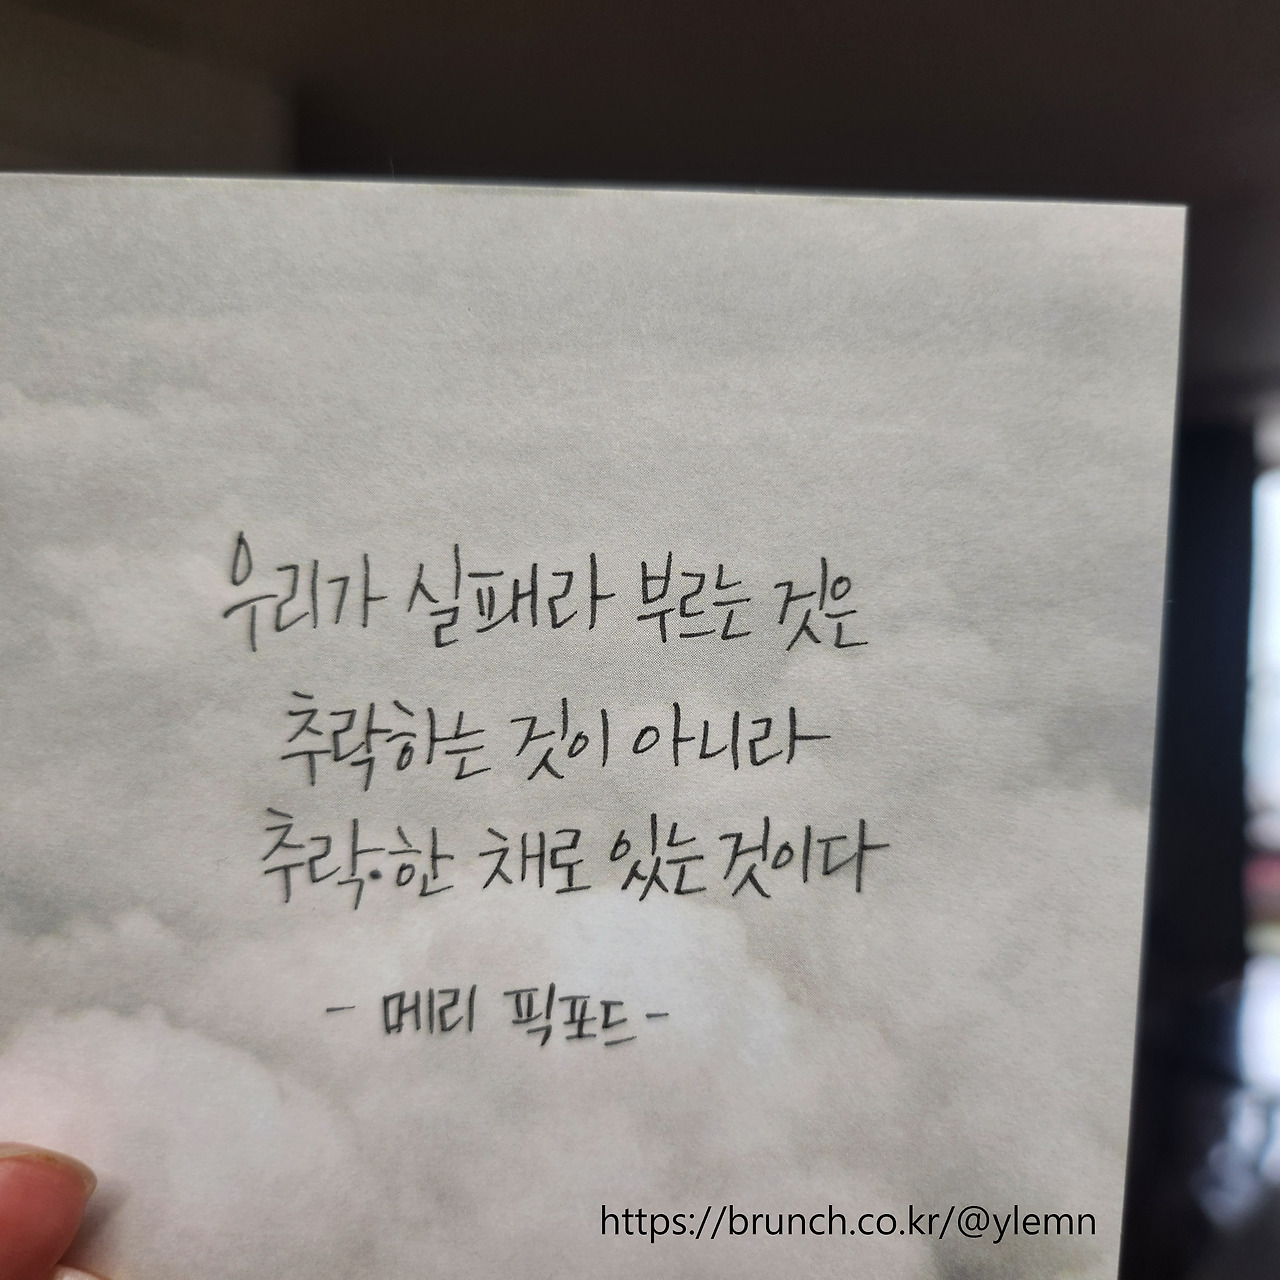 우리가 실패라 부르는 것은
추락하는 것이 아니라
추락·한 채로 있는 것이다
- 메리 픽포드 -
https://brunch.co.kr/@ylemn